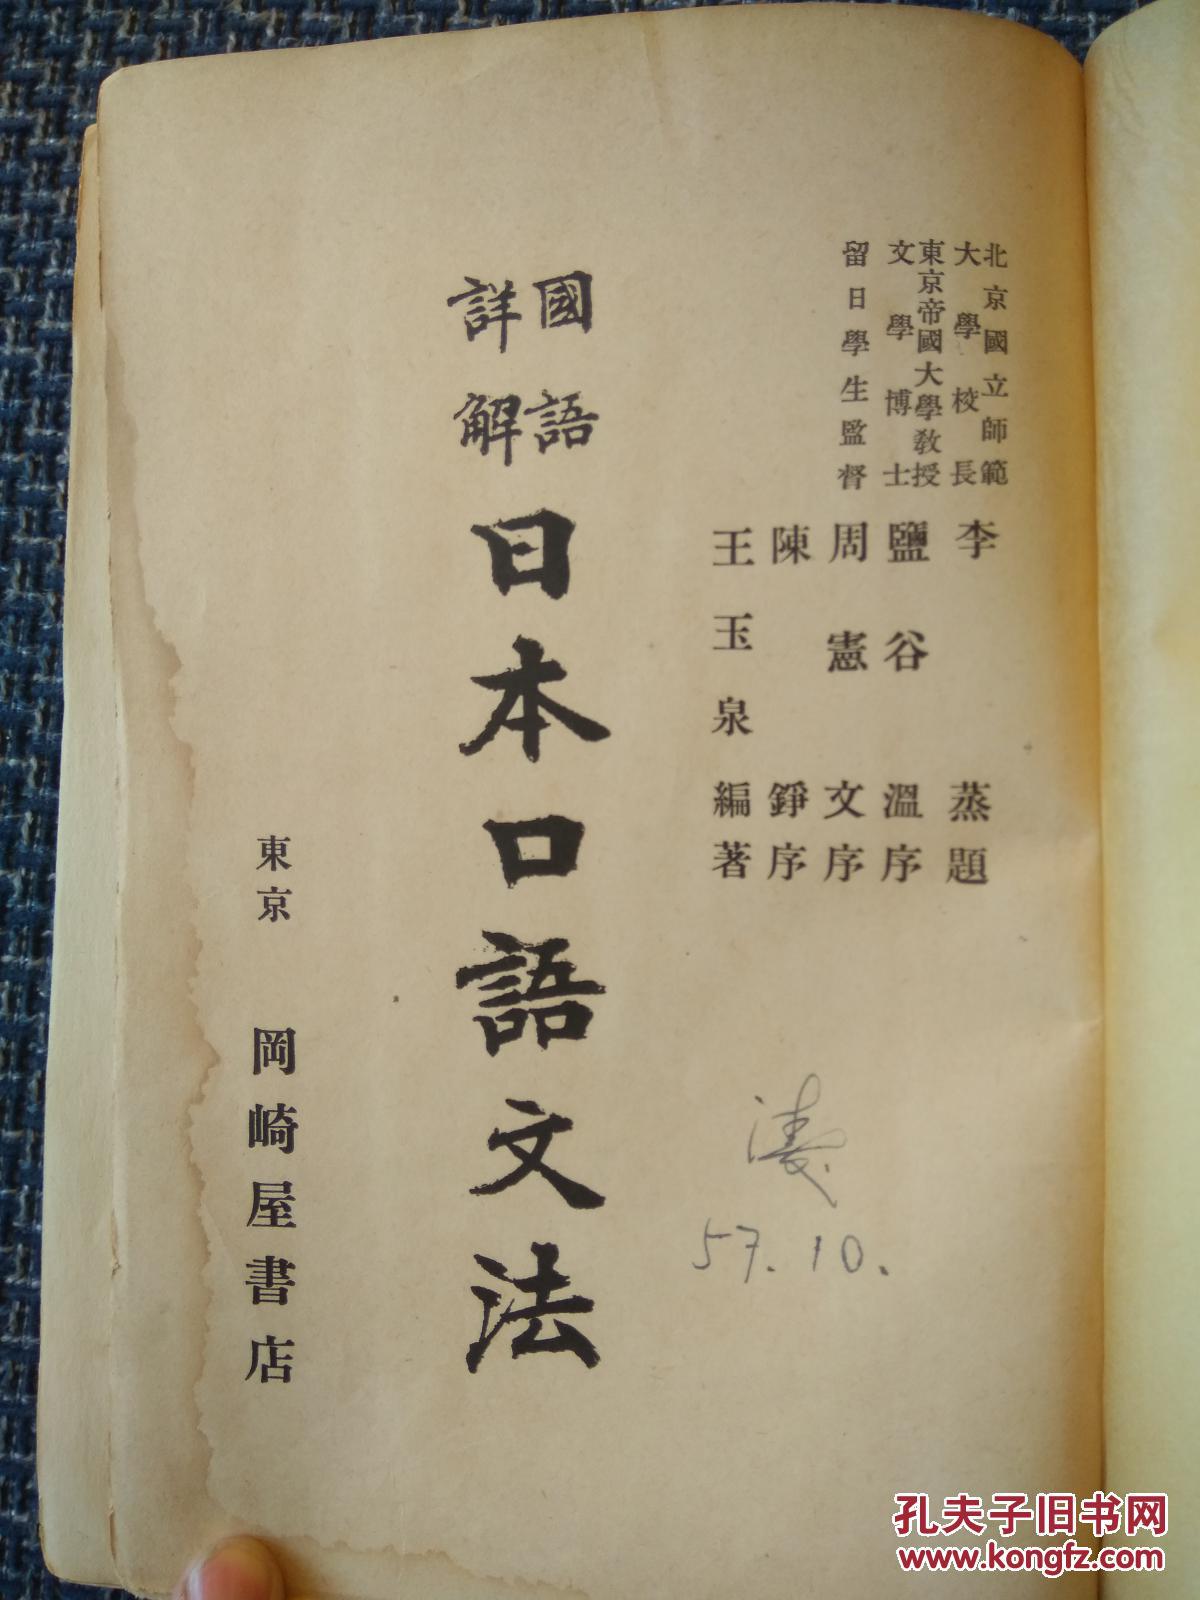 北京國立師範
大學校長
李蒸題
東京帝國大學教授
文學博士
鹽谷溫序
留日學生監督
周憲文序
陳錚序
王玉泉編著
國語
詳解
日本口語文法
東京 岡崎屋書店
57.10.
孔夫子旧书网
www.kongfz.com